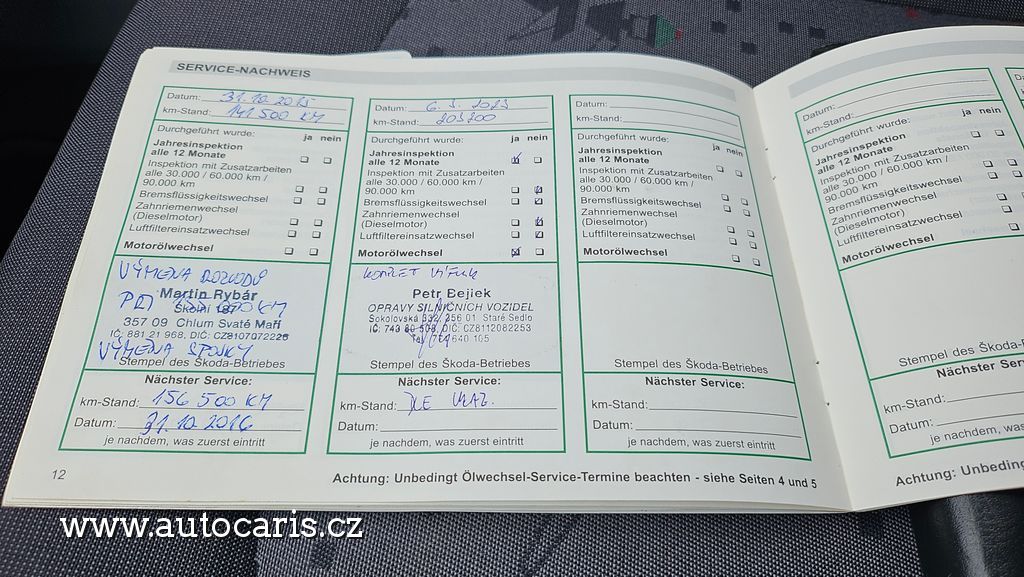 SERVICE-NACHWEIS
Datum: 31.10.2015
km-Stand: 141 500 KM
Durchgeführt wurde: ja nein
Jahresinspektion
alle 12 Monate
Inspektion mit Zusatzarbeiten
alle 30.000 / 60.000 km /
90.000 km
Bremsflüssigkeitswechsel
Zahnriemenwechsel
(Dieselmotor)
Luftfiltereinsatzwechsel
Motorölwechsel
VÝMENA ROZVODŮ
Martin Rybár
PŘI KM
Školní 187
357 09 Chlum Svaté Maří
IČ: 881 21 968, DIČ: CZ8107072226
VÝMENA SPOJKY
Stempel des Škoda-Betriebes
Nächster Service:
km-Stand: 156 500 KM
Datum: 31.10.2016
je nachdem, was zuerst eintritt
Datum: 6. 3. 2023
km-Stand: 203200
Durchgeführt wurde: ja nein
Jahresinspektion
alle 12 Monate
Inspektion mit Zusatzarbeiten
alle 30.000 / 60.000 km /
90.000 km
Bremsflüssigkeitswechsel
Zahnriemenwechsel
(Dieselmotor)
Luftfiltereinsatzwechsel
Motorölwechsel
KOMPLET VÝFUK
Petr Bejlek
OPRAVY SILNIČNÍCH VOZIDEL
Sokolovská 332, 356 01 Staré Sedlo
DIČ: CZ8112082253
640 105
Stempel des Škoda-Betriebes
Nächster Service:
km-Stand: DLE UKAZ.
Datum:
je nachdem, was zuerst eintritt
Datum:
km-Stand:
Durchgeführt wurde: ja nein
Jahresinspektion
alle 12 Monate
Inspektion mit Zusatzarbeiten
alle 30.000 / 60.000 km /
90.000 km
Bremsflüssigkeitswechsel
Zahnriemenwechsel
(Dieselmotor)
Luftfiltereinsatzwechsel
Motorölwechsel
Stempel des Škoda-Betriebes
Nächster Service:
km-Stand:
Datum:
je nachdem, was zuerst eintritt
12
Achtung: Unbedingt Ölwechsel-Service-Termine beachten - siehe Seiten 4 und 5
Datum:
km-Stand:
Durchgeführt wurde: ja nein
Jahresinspektion
alle 12 Monate
Inspektion mit Zusatzarbeiten
alle 30.000 / 60.000 km /
90.000 km
Bremsflüssigkeitswechsel
Zahnriemenwechsel
(Dieselmotor)
Luftfiltereinsatzwechsel
Motorölwechsel
Stempel des Škoda-
Nächster Ser
km-Stand:
Datum:
je nachdem, was zuerst
Achtung: Unbeding
www.autocaris.cz